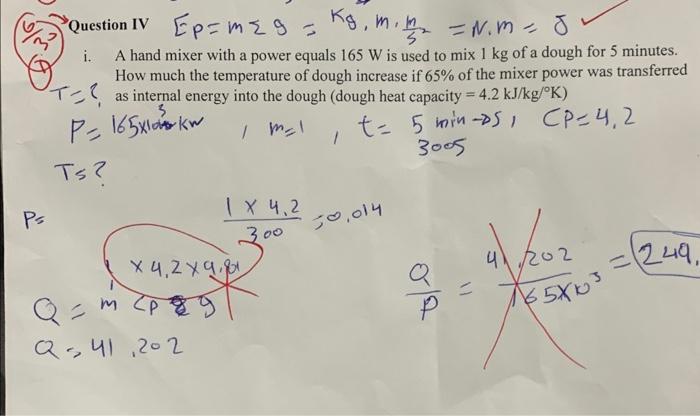 Question IV Ep = m Σ g = Kg . m . m/s² = N.m = J ✓
i. A hand mixer with a power equals 165 W is used to mix 1 kg of a dough for 5 minutes.
How much the temperature of dough increase if 65% of the mixer power was transferred
T=? as internal energy into the dough (dough heat capacity = 4.2 kJ/kg/°K)
P= 165x10³ kW , m=1 , t= 5 min →S , CP=4,2
300S
T=?
P=
1 x 4,2 / 300 = 0,014
1 x 4,2 x 9,81
Q = m CP g
Q = 41,202
Q/P = 41,202 / 165x10³ = 249.